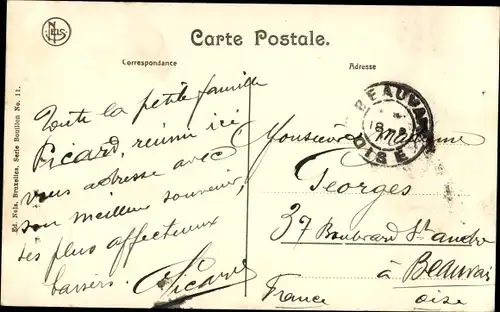 NELS
Carte Postale.
Correspondance
Adresse
Ed. Nels, Bruxelles. Serie Bouillon No. 11.
Toute la petite famille
Picard, réunie ici
vous adresse avec
son meilleur souvenir,
ses plus affectueux
baisers. Picard
BEAUVAIS
18
OISE
Monsieur Madame
Georges
37 Boulevard St andré
à Beauvais
France oise